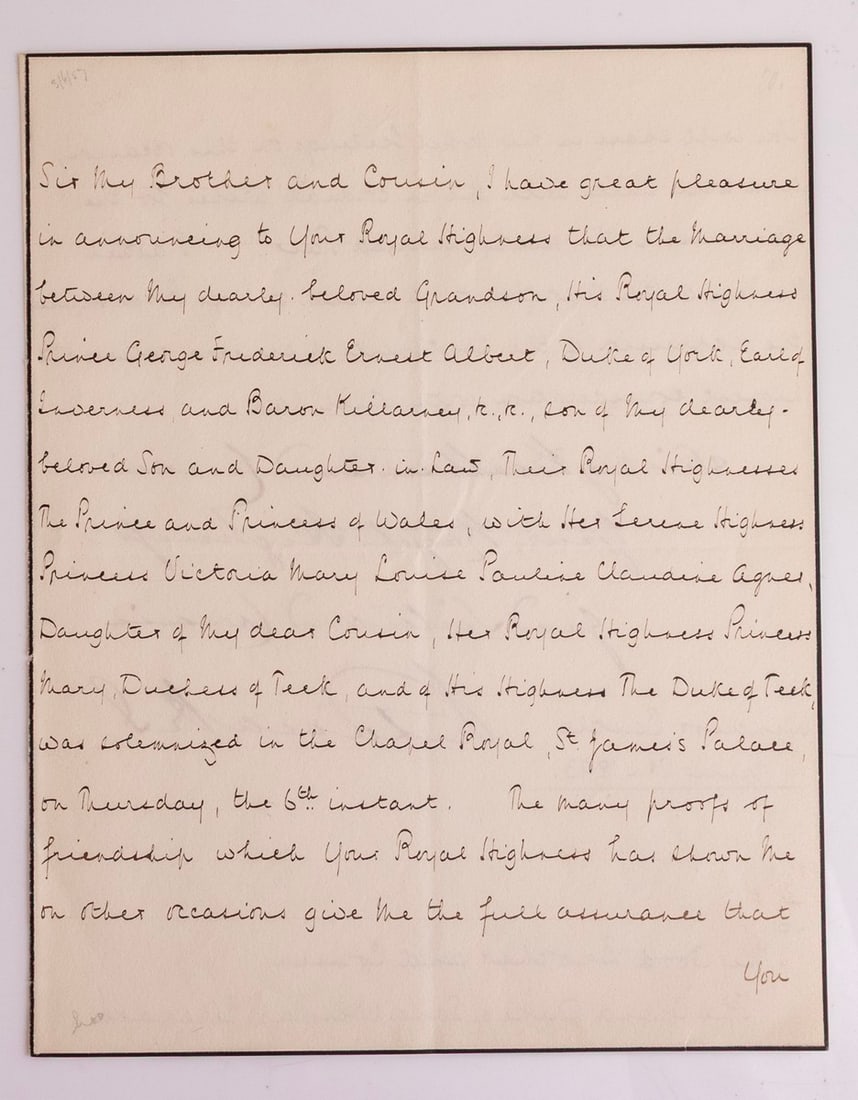 Sir My Brother and Cousin, I have great pleasure
in announcing to Your Royal Highness that the Marriage
between My dearly-beloved Grandson, His Royal Highness
Prince George Frederick Ernest Albert, Duke of York, Earl of
Inverness and Baron Killarney, &c., &c., son of My dearly-
beloved Son and Daughter-in-Law, Their Royal Highnesses
The Prince and Princess of Wales, with Her Serene Highness
Princess Victoria Mary Louise Pauline Claudine Agnes,
Daughter of My dear Cousin, Her Royal Highness Princess
Mary, Duchess of Teck, and of His Highness The Duke of Teck,
was solemnized in the Chapel Royal, St James's Palace,
on Thursday, the 6th instant. The many proofs of
friendship which Your Royal Highness has shown Me
on other occasions give Me the full assurance that
You